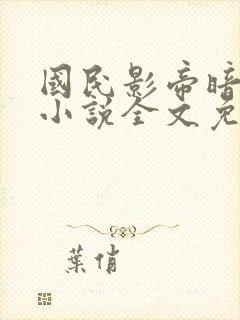 國民影帝暗
小說全文免
葉俏